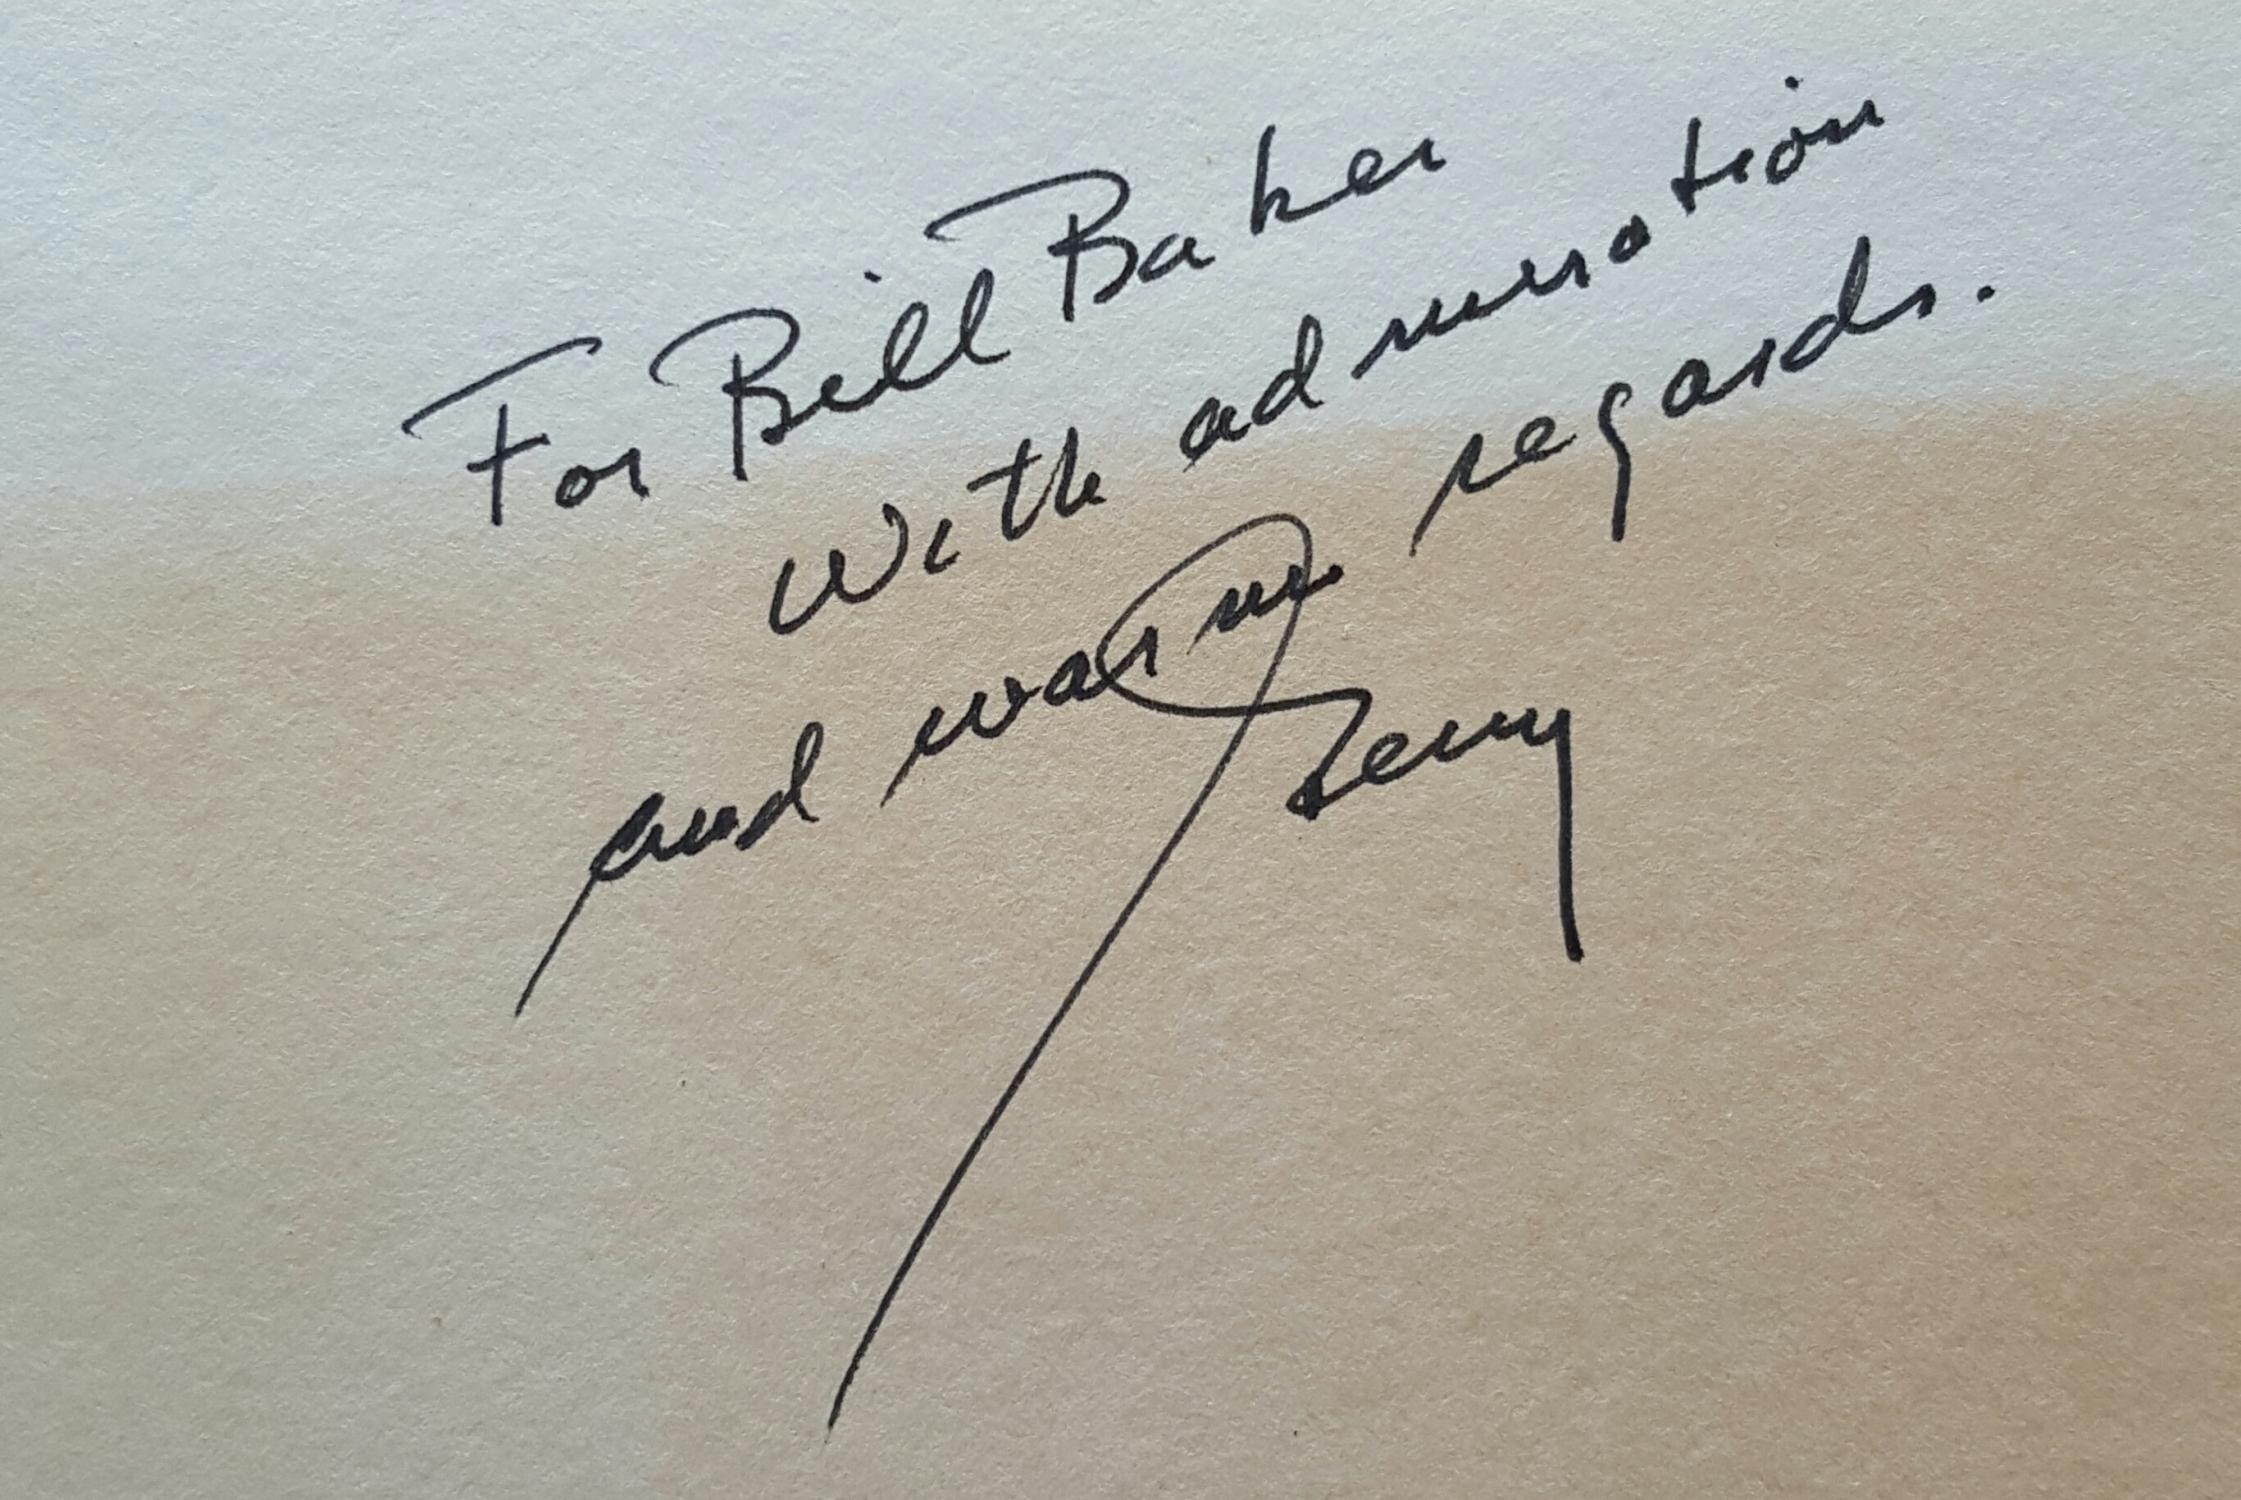 For Bill Baker
With admiration
and warm regards.
Jerry